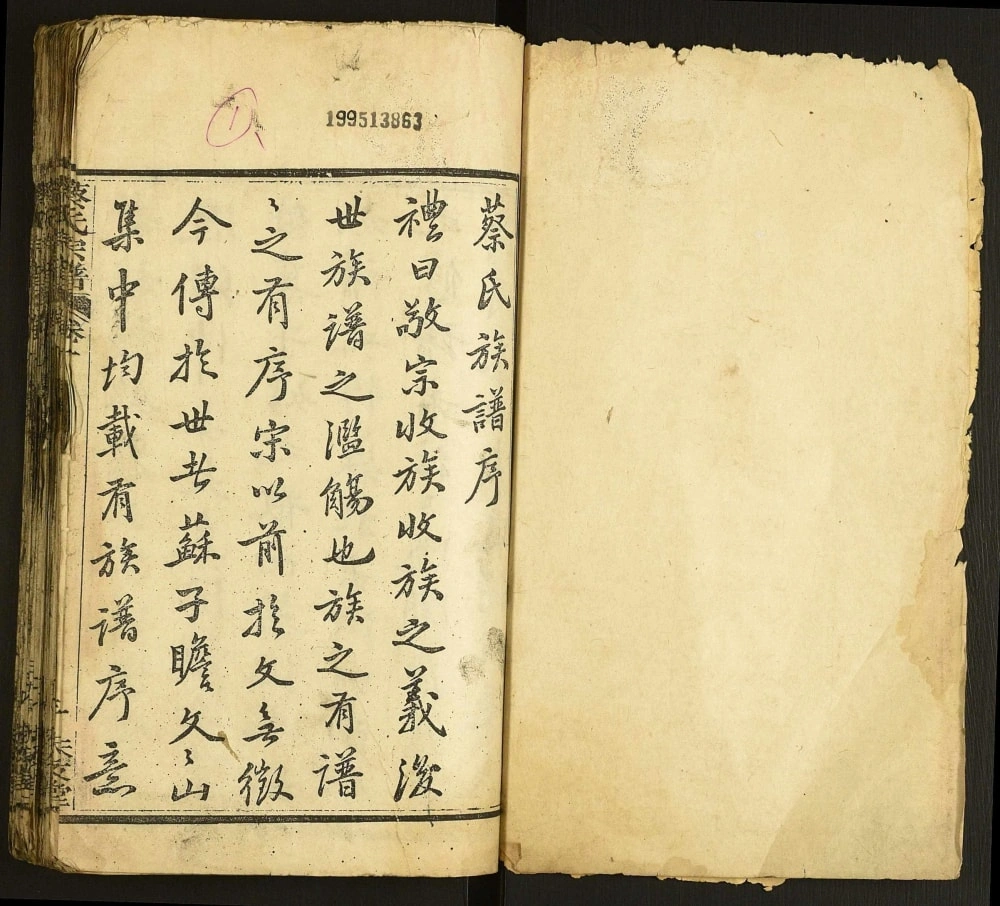 199513863
1
蔡氏族譜序
禮曰敬宗收族收族之義後
世族譜之濫觴也族之有譜
〻之有序宋以前於文無徵
今傳於世者蘇子瞻文〻山
集中均載有族譜序意
蔡氏宗譜 卷一